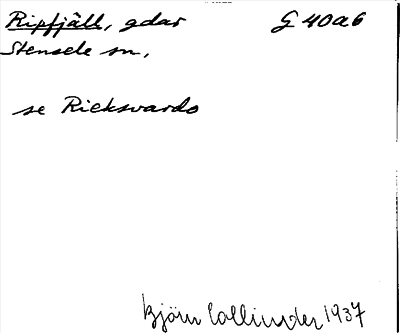 Ripfjäll, gdar G 40a6
Stensele sn,
se Rieksvardo
Björn Collinder 1937